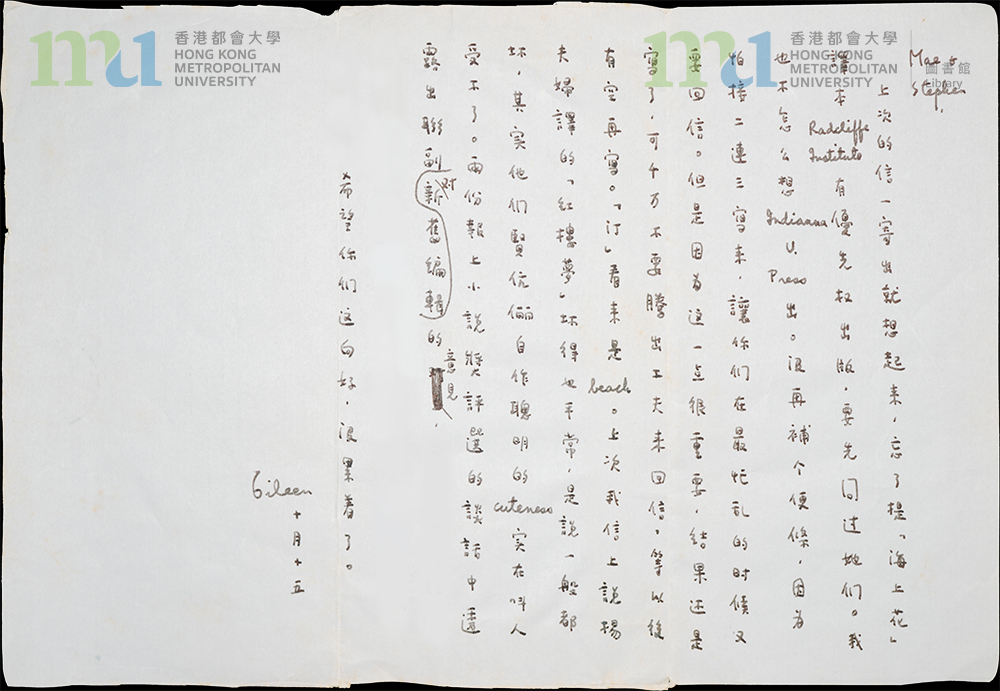 香港都會大學
HONG KONG
METROPOLITAN
UNIVERSITY
香港都會大學
HONG KONG
METROPOLITAN
UNIVERSITY
圖書館
Library
Mae &
Stephen,
上次的信一寄出就想起來,忘了提「海上花」
譯本 Radcliffe Institute 有優先权出版,要先问过她们。我
也不怎么想 Indianna U. Press 出。沒再補个便條,因为
怕接二連三寫來,讓你们在最忙乱的时候又
要回信。但是因为这一点很重要,结果还是
寫了,可千万不要騰出工夫來回信,等以後
有空再寫。「汀」看来是 beach。上次我信上說楊
夫婦譯的「紅樓夢」坏得也平常,是説一般都
坏,其实他们賢伉儷自作聰明的 cuteness 实在叫人
受不了。兩份報上小說獎評選的談話中透
露出聯副对新舊編輯的意見,
希望你们这向好,沒累着了。
Eileen
十月十五